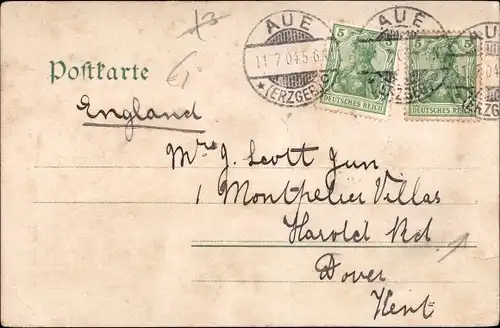 AUE
11.7.04.5-6
*(ERZGEB.)
5 5
DEUTSCHES REICH
AUE
5 5
DEUTSCHES REICH
AUE
(ERZGEB
Postkarte
England
Mrs J. Scott Jun
1 Montpelier Villas
Harold Rd
Dover
Kent